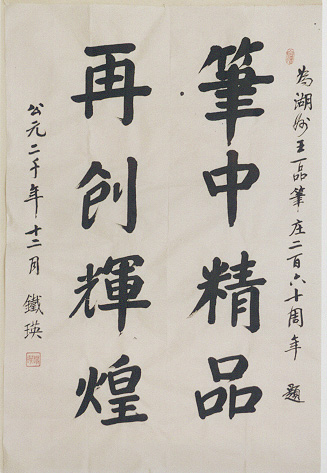 為湖州王一品筆庄二百六十周年 題
筆中精品
再創輝煌
公元二千年十二月 鐵瑛